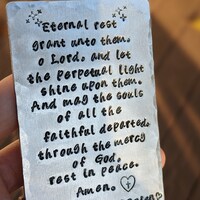 Eternal rest
grant unto them.
O Lord, and let
the perpetual light
shine upon them.
And may the souls
of all the
faithful departed.
through the mercy
of God,
rest in peace.
Amen.